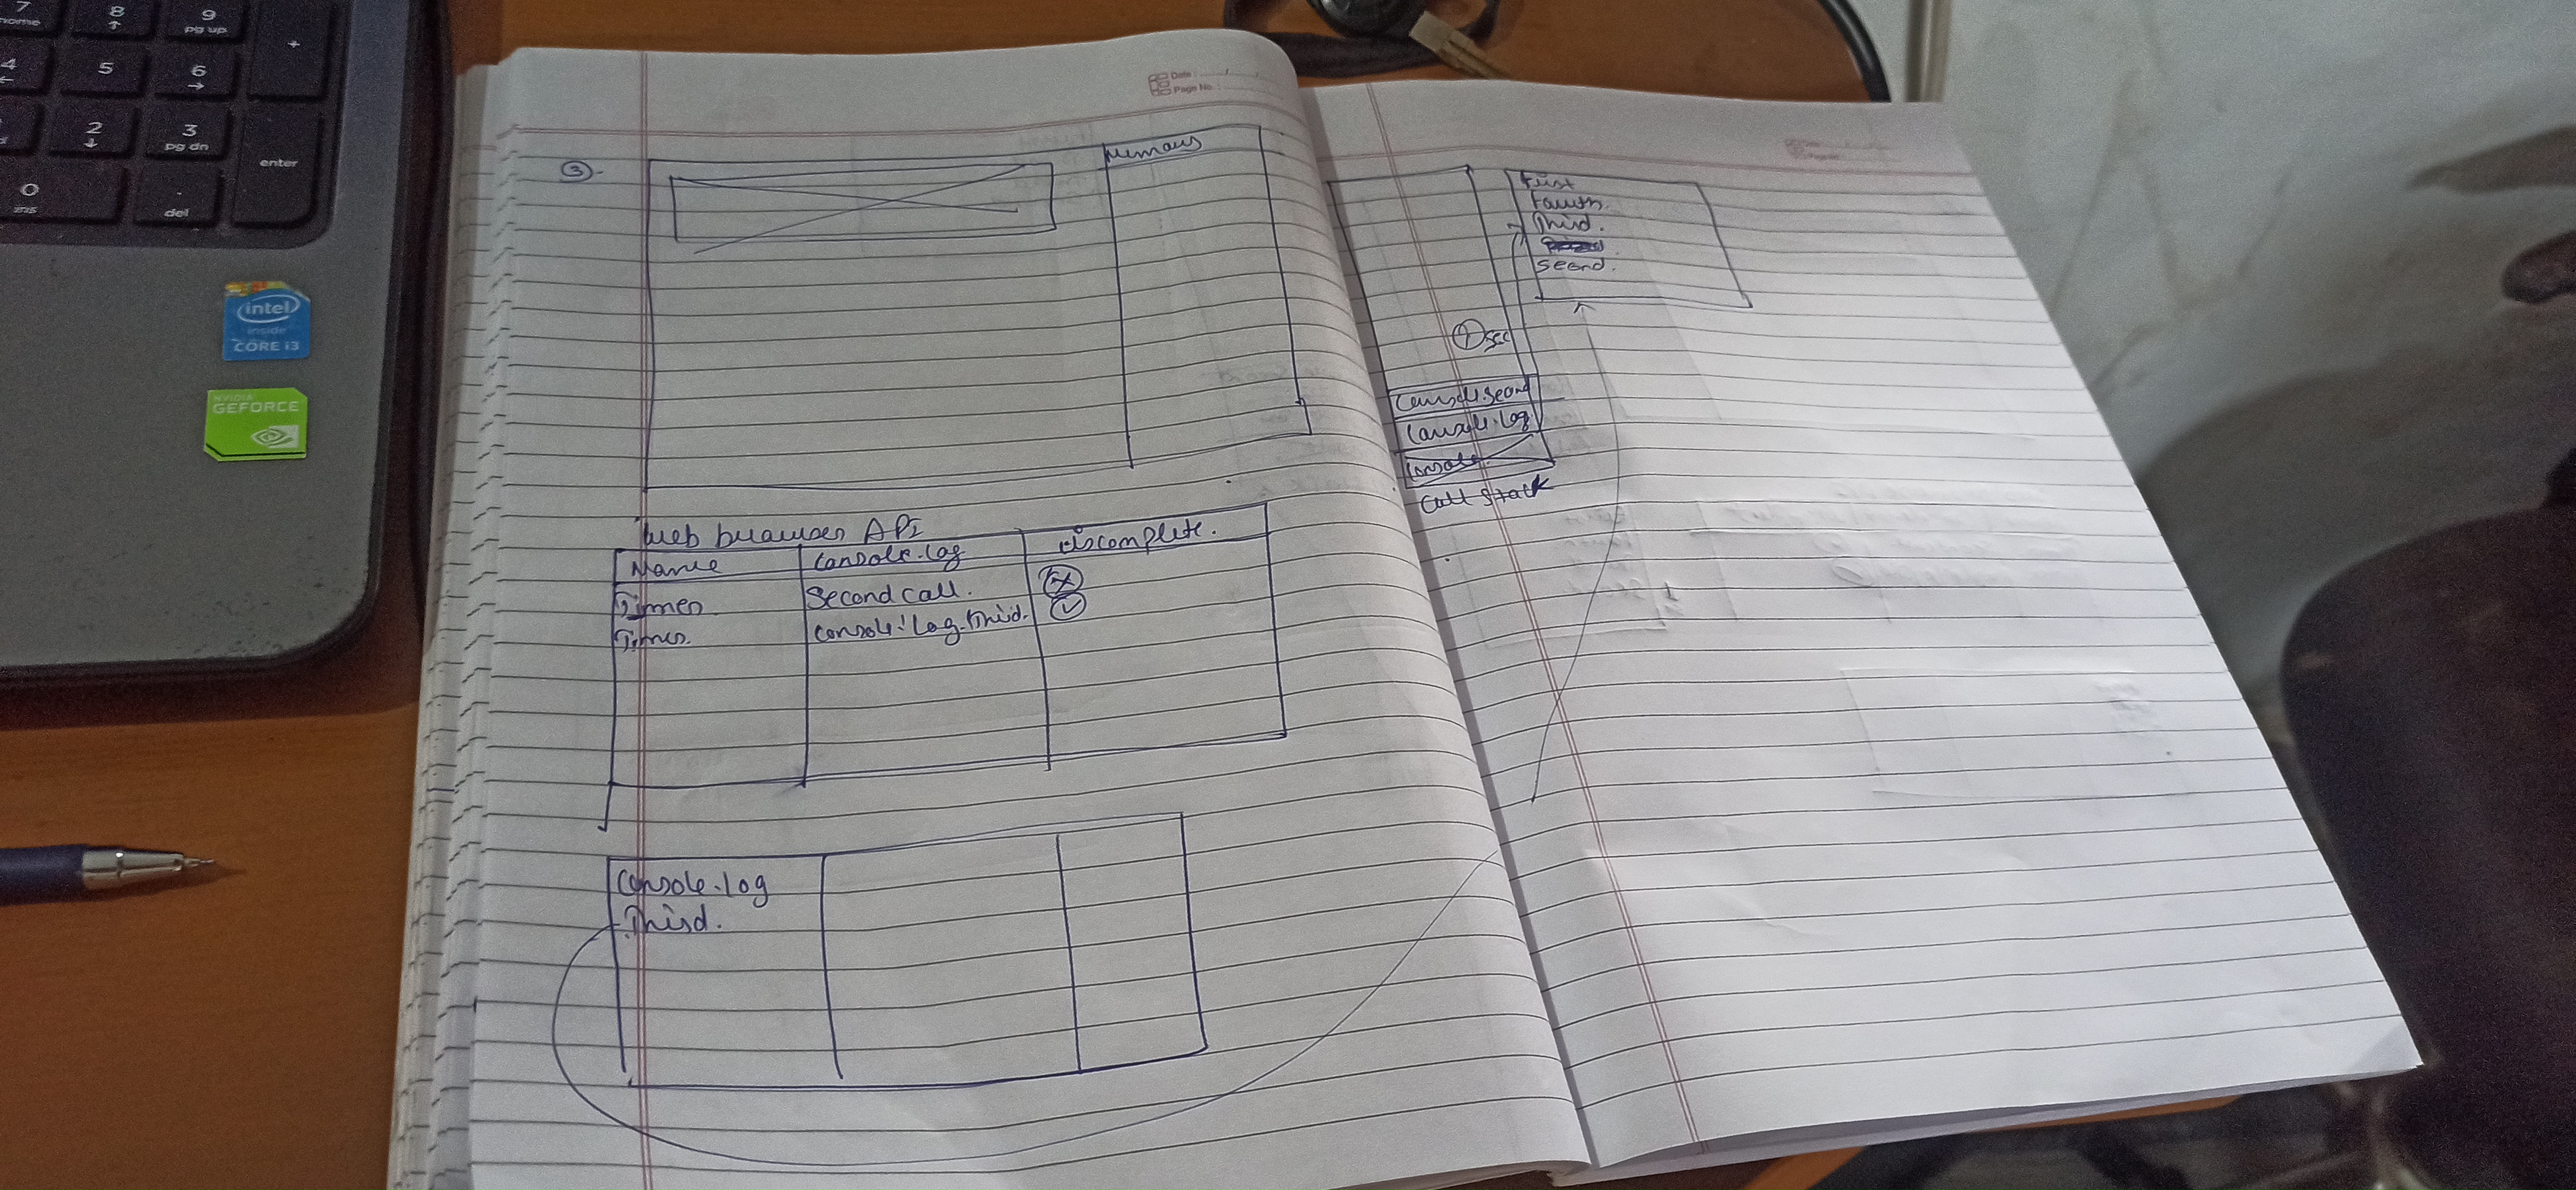 7
home
8
↑
9
pg up
+
4
←
5
6
→
2
↓
3
pg dn
enter
0
ins
.
del
intel
inside
CORE i3
NVIDIA
GEFORCE
Date :
Page No. :
③.
web browser API
Name
console.log
iscomplete.
Timer
Second call.
Timer.
console.log.third.
console.log
Third.
First
Fourth.
Third.
Second.
sec
console.log
console
call stack